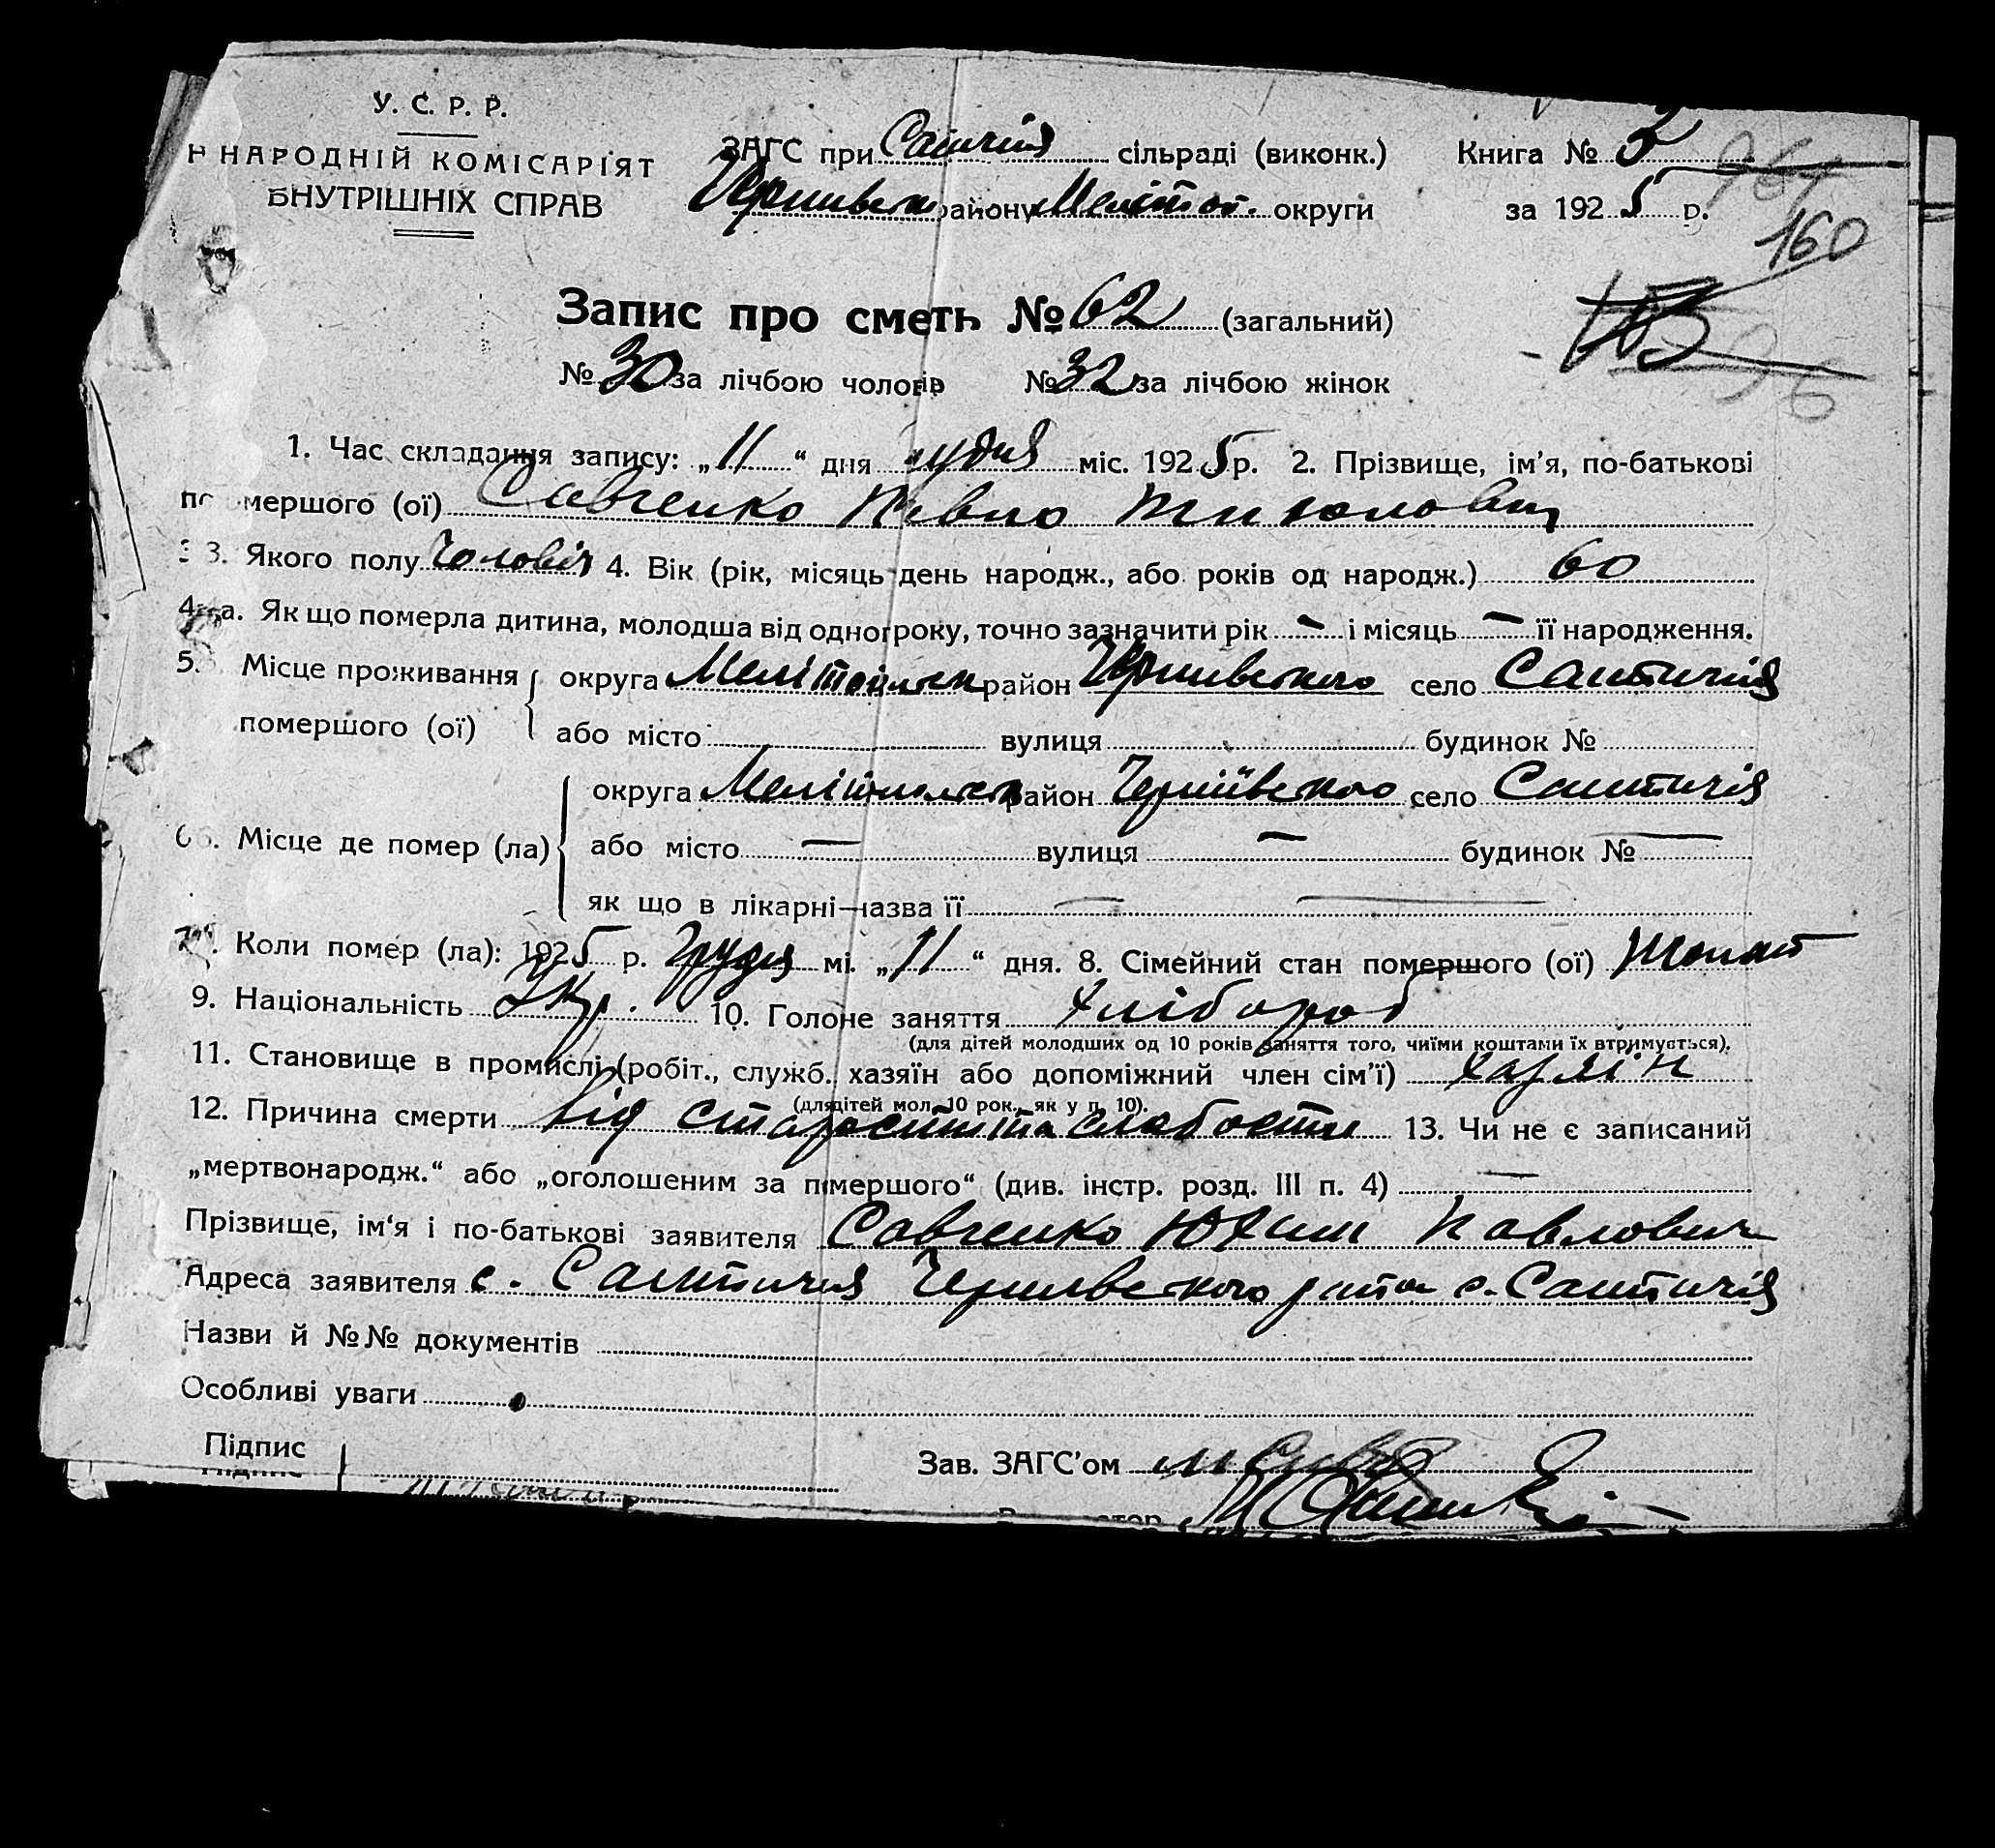 У. С. Р. Р.
НАРОДНІЙ КОМІСАРІЯТ
ВНУТРІШНІХ СПРАВ
ЗАГС при сільраді (виконк.) Книга № 5
району Меліто́п. округи за 1925 р.
160
Запис про сметь № 62 (загальний)
№ 30 за лічбою чоловів № 32 за лічбою жінок
1. Час складання запису: „11“ дня грудня міс. 1925 р. 2. Прізвище, ім'я, по-батькові
помершого (ої) Савченко Павло
3. Якого полу Чоловіч 4. Вік (рік, місяць день народж., або років од народж.) 60
4а. Як що померла дитина, молодша від одног року, точно зазначити рік — і місяць — її народження.
5. Місце проживання округа Мелітопольск район село
помершого (ої) або місто вулиця будинок №
округа Мелітопольск район село
6. Місце де помер (ла) або місто — вулиця — будинок № —
як що в лікарні—назва її — —
7. Коли помер (ла): 1925 р. Грудня мі. „11“ дня. 8. Сімейний стан помершого (ої) Жонат
9. Національність Укр. 10. Голоне заняття Хлібороб
(для дітей молодших од 10 років заняття того, чиїми коштами їх втримується).
11. Становище в промислі (робіт., служб., хазяїн або допоміжний член сім'ї) хазяїн
(для дітей мол. 10 рок., як у п. 10).
12. Причина смерти від старости та слабости 13. Чи не є записаний
„мертвонародж.“ або „оголошеним за пмершого“ (див. інстр. розд. III п. 4) —
Прізвище, ім'я і по-батькові заявителя Савченко Юхим Павлович
Адреса заявителя с.
Назви й №№ документів
Особливі уваги
Підпис Зав. ЗАГС'ом